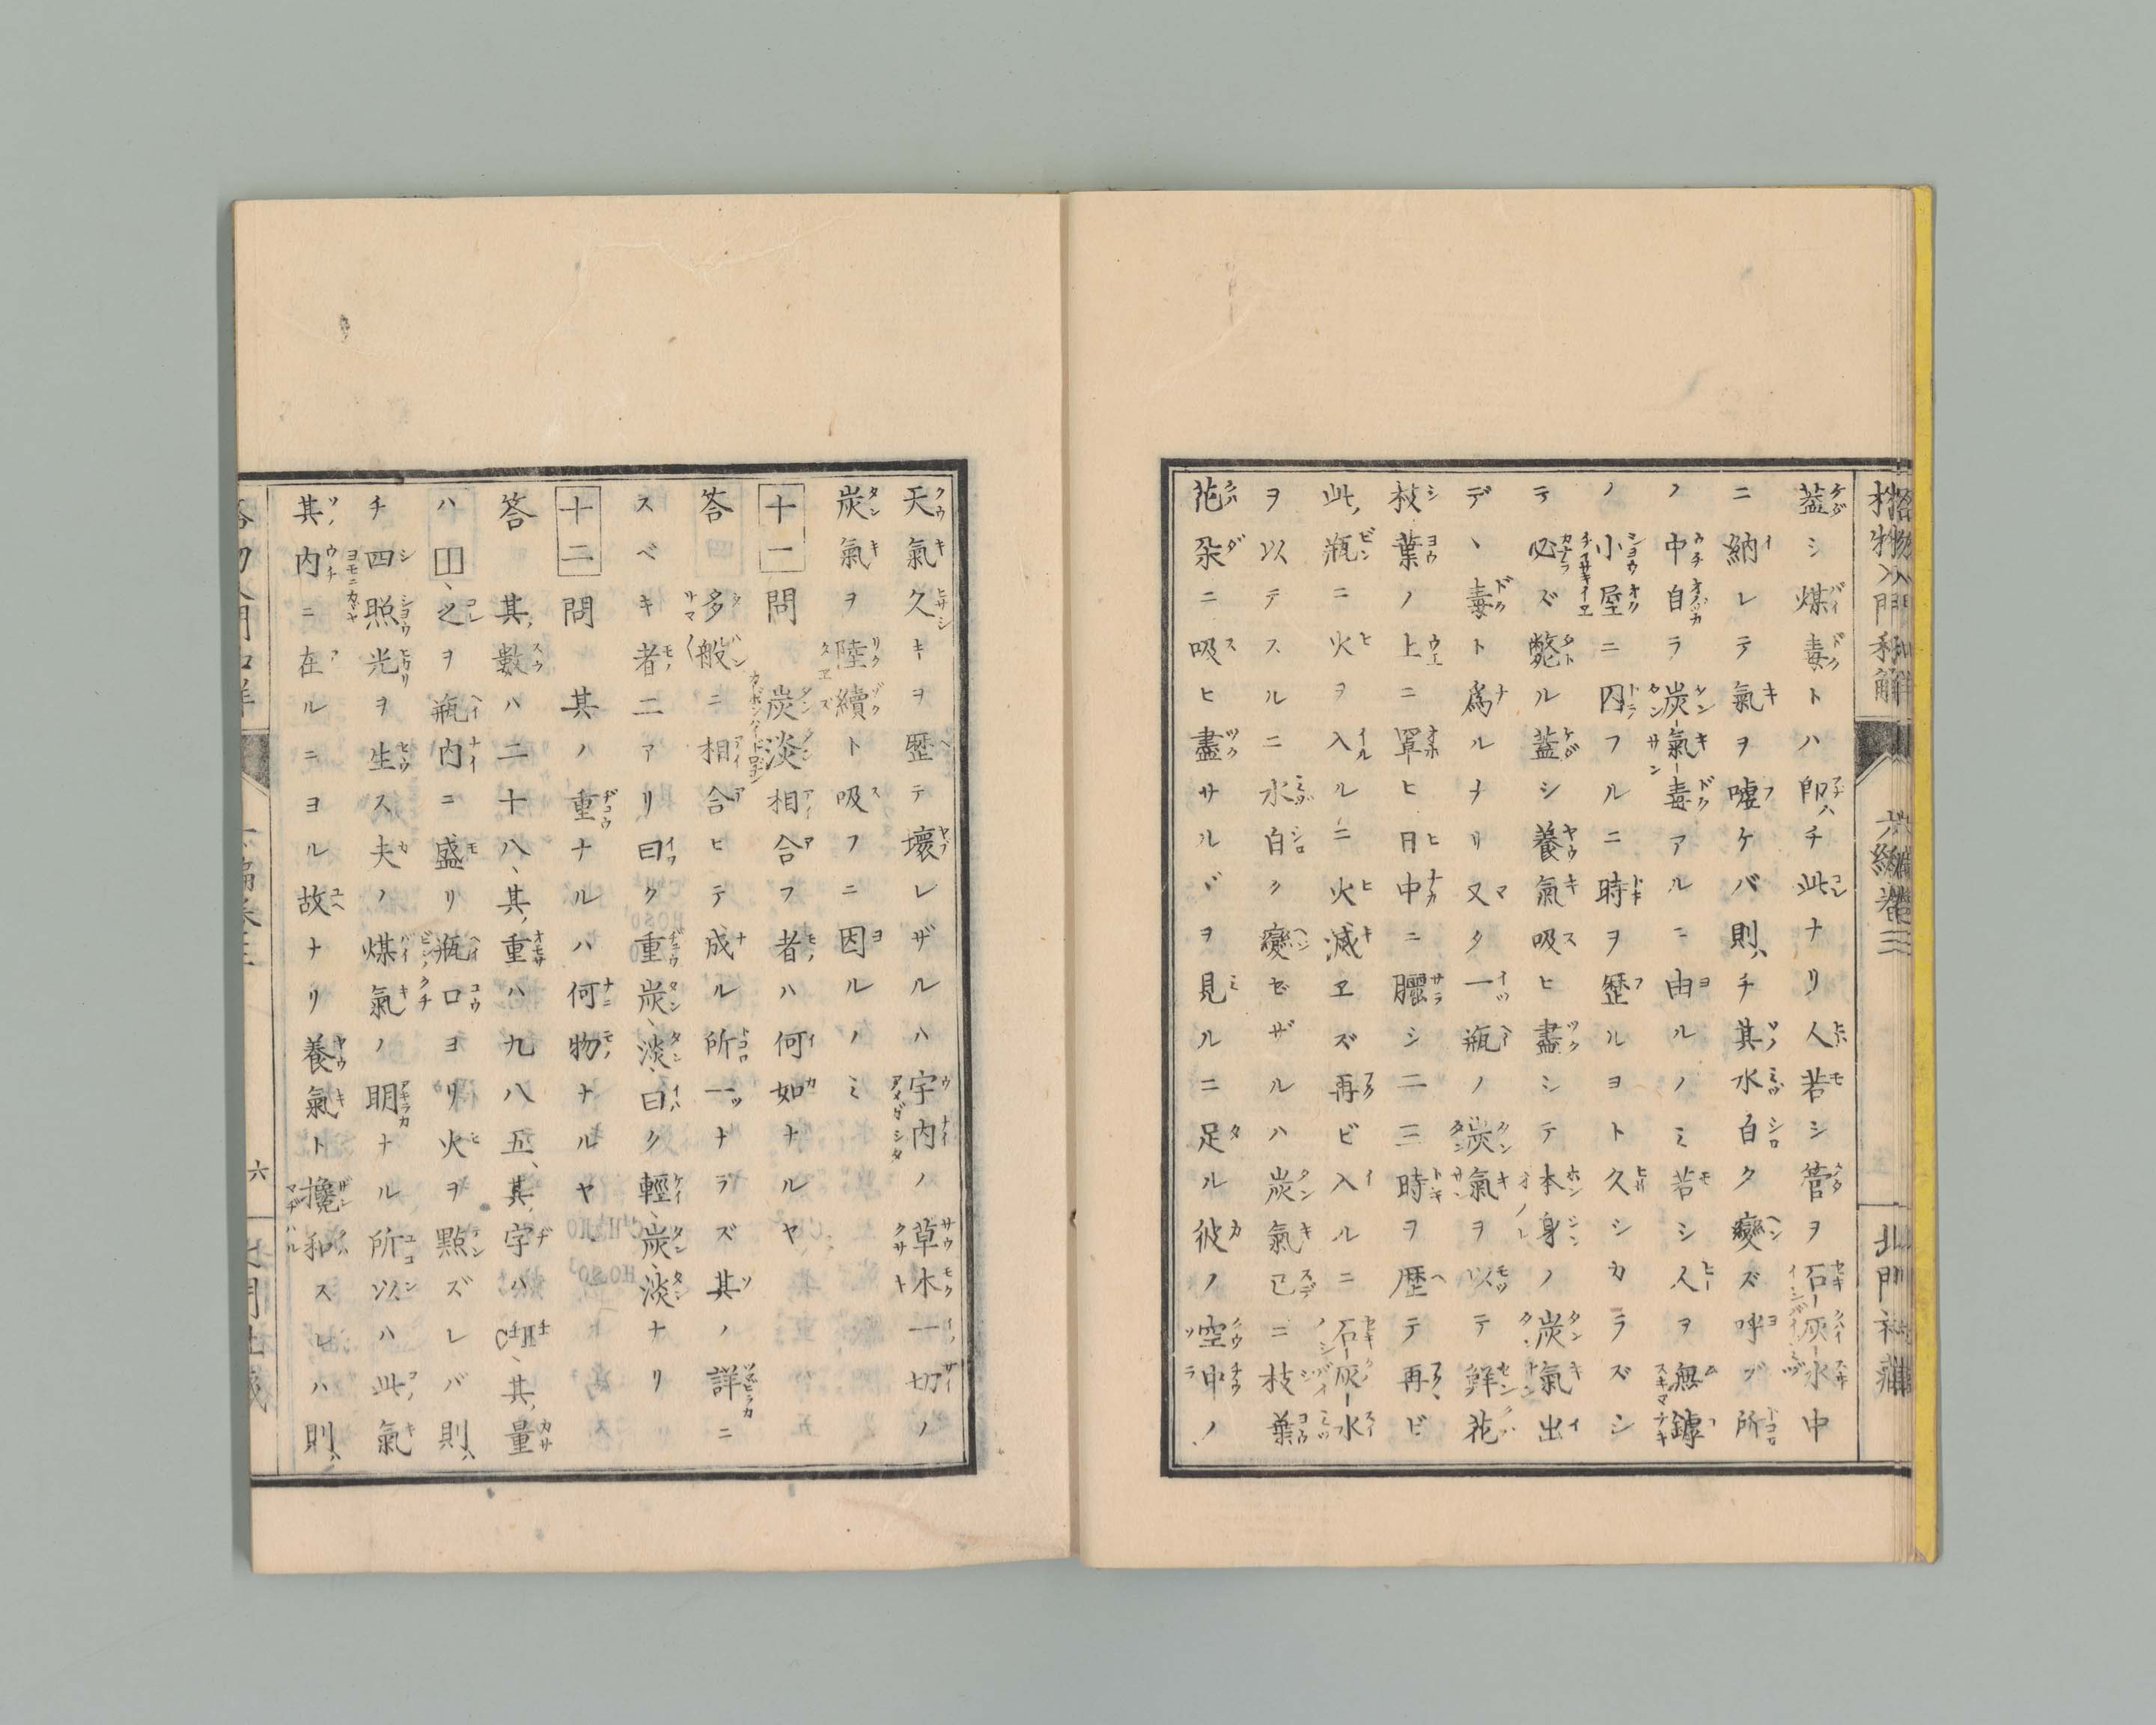 蓋シ煤毒トハ即チ此ナリ人若シ管ヲ石灰水中
ニ納レテ氣ヲ噓ケバ則チ其水白ク變ズ呼ブ所
ノ中自ラ炭氣毒アルニ由ルノミ若シ人ヲ無鏬
ノ小屋ニ囚フルニ時ヲ歷ルヨト久シカラズシ
テ必ズ斃ル蓋シ養氣吸ヒ盡シテ本身ノ炭氣出
デヽ毒ト爲ルナリ又タ一瓶ノ炭氣ヲ以テ鮮花
枝葉ノ上ニ罩ヒ日中ニ曬シ二三時ヲ歴テ再ビ
此瓶ニ火ヲ入ルニ火滅エズ再ビ入ルニ石灰水
ヲ以テスルニ水白ク變ゼザルハ炭氣已ニ枝葉
花朶ニ吸ヒ盡サルヾヲ見ルニ足ル彼ノ空中ノ
天氣久キヲ歷テ壞レザルハ宇内ノ草木一切ノ
炭氣ヲ陸續ト吸フニ因ルノミ
十一問 炭淡相合フ者ハ何如ナルヤ
答 多般ニ相合ヒテ成ル所一ツナラズ其ノ詳ニ
スベキ者二アリ曰ク重炭淡曰ク輕炭淡ナリ
十二問 其ノ重ナルハ何物ナルヤ
答 其數ハ二十八、其重ハ九八五、其字ハC士H士、其量
ハ囗、之ヲ瓶内ニ盛リ瓶口ヨリ火ヲ點ズレバ則
チ四照光ヲ生ス夫ノ煤氣ノ明ナル所以ハ此氣
其内ニ在ルニヨル故ナリ養氣ト攙和スレハ則
六